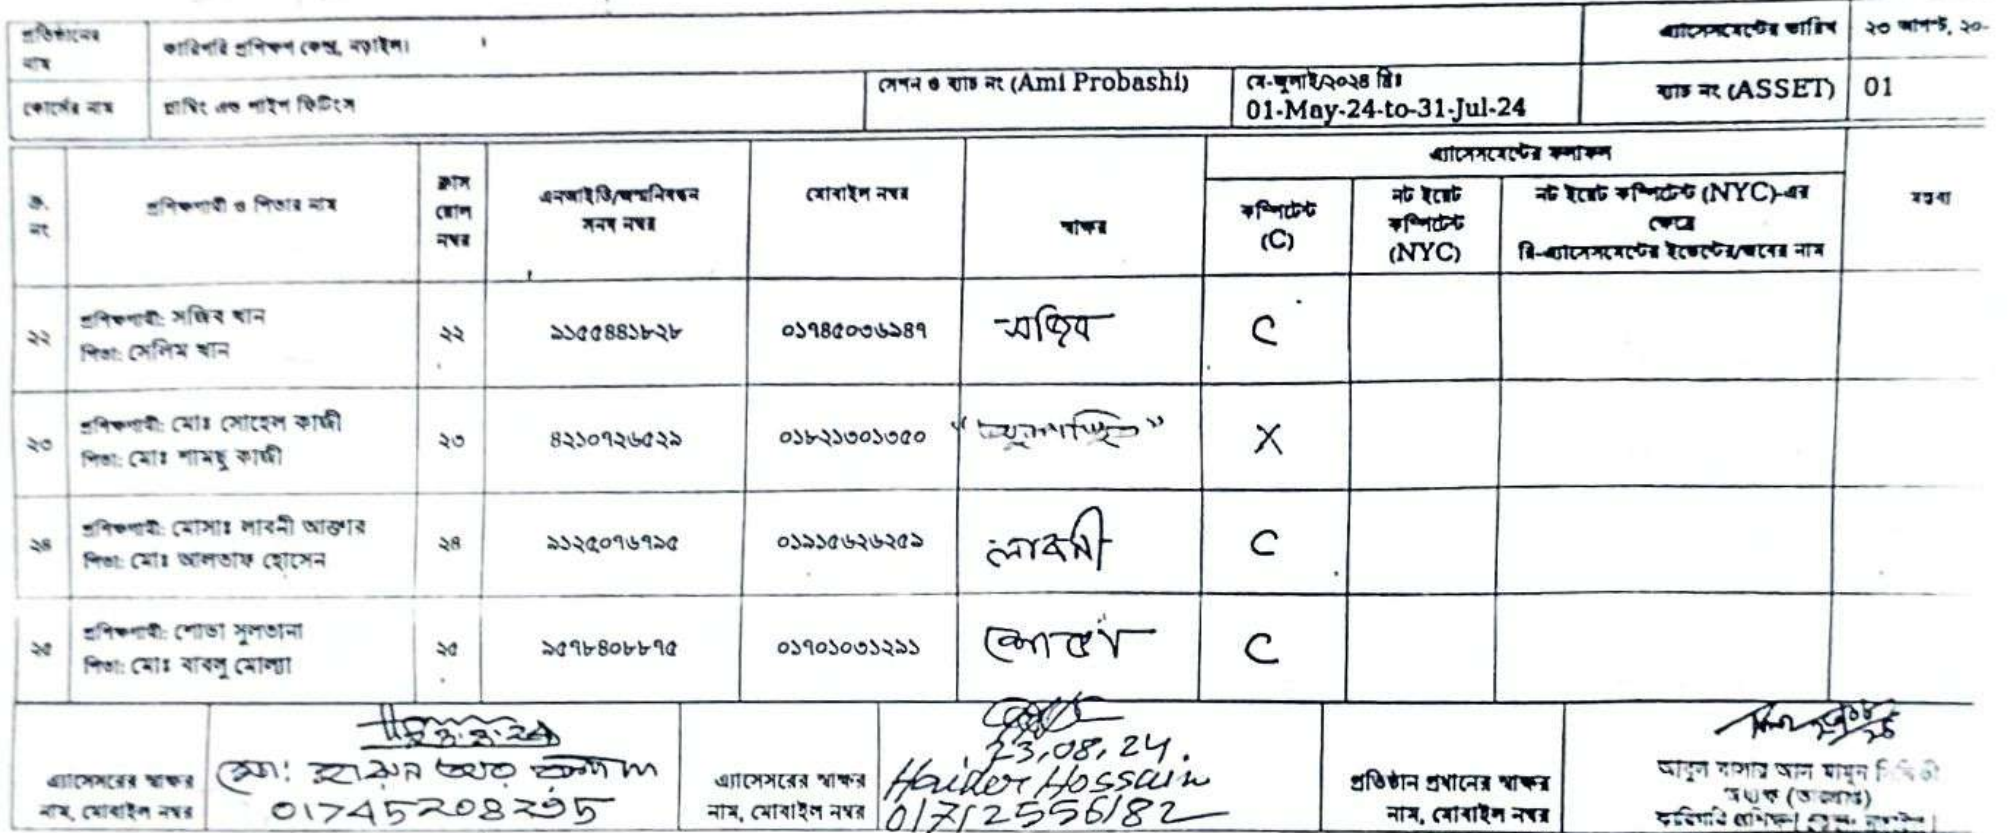 প্রতিষ্ঠানের নাম
কারিগরি প্রশিক্ষণ কেন্দ্র, নড়াইল।
এ্যাসেসমেন্টের তারিখ
২৩ আগস্ট, ২০-
কোর্সের নাম
প্লাম্বিং এন্ড পাইপ ফিটিংস
সেশন ও ব্যাচ নং (Ami Probashi)
মে-জুলাই/২০২৪ খ্রিঃ
01-May-24-to-31-Jul-24
ব্যাচ নং (ASSET)
01
ক্র. নং
প্রশিক্ষণার্থী ও পিতার নাম
ক্লাস রোল নম্বর
এনআইডি/জন্মনিবন্ধন সনদ নম্বর
মোবাইল নম্বর
স্বাক্ষর
এ্যাসেসমেন্টের ফলাফল
কম্পিটেন্ট (C)
নট ইয়েট কম্পিটেন্ট (NYC)
নট ইয়েট কম্পিটেন্ট (NYC)-এর ক্ষেত্রে
রি-এ্যাসেসমেন্টের ইভেন্টের/জবের নাম
মন্তব্য
২২
প্রশিক্ষণার্থী: সজিব খান
পিতা: সেলিম খান
২২
১১৫৫৪৪১৮২৮
০১৭৪৫০৩৬১৪৭
সজিব
C
২৩
প্রশিক্ষণার্থী: মোঃ সোহেল কাজী
পিতা: মোঃ শামছু কাজী
২৩
৪২১০৭২৬৫২১
০১৮২১৩০১৩৫০
"অনুপস্থিত"
X
২৪
প্রশিক্ষণার্থী: মোসাঃ লাবনী আক্তার
পিতা: মোঃ আলতাফ হোসেন
২৪
১১২৫০৭৬৭১৫
০১৯১৫৬২৬২৫১
লাবনী
C
২৫
প্রশিক্ষণার্থী: শোভা সুলতানা
পিতা: মোঃ বাবলু মোল্যা
২৫
১৫৭৮৪০৮৮৭৫
০১৭০১০৩১২১১
শোভা
C
এ্যাসেসরের স্বাক্ষর
নাম, মোবাইল নম্বর
23.8.24
মো:
01745208295
এ্যাসেসরের স্বাক্ষর
নাম, মোবাইল নম্বর
23.08.24.
Haider Hossain
01712556182
প্রতিষ্ঠান প্রধানের স্বাক্ষর
নাম, মোবাইল নম্বর
আবুল বাসার আল মামুন
অধ্যক্ষ (ভারপ্রাপ্ত)
কারিগরি প্রশিক্ষণ কেন্দ্র, নড়াইল।